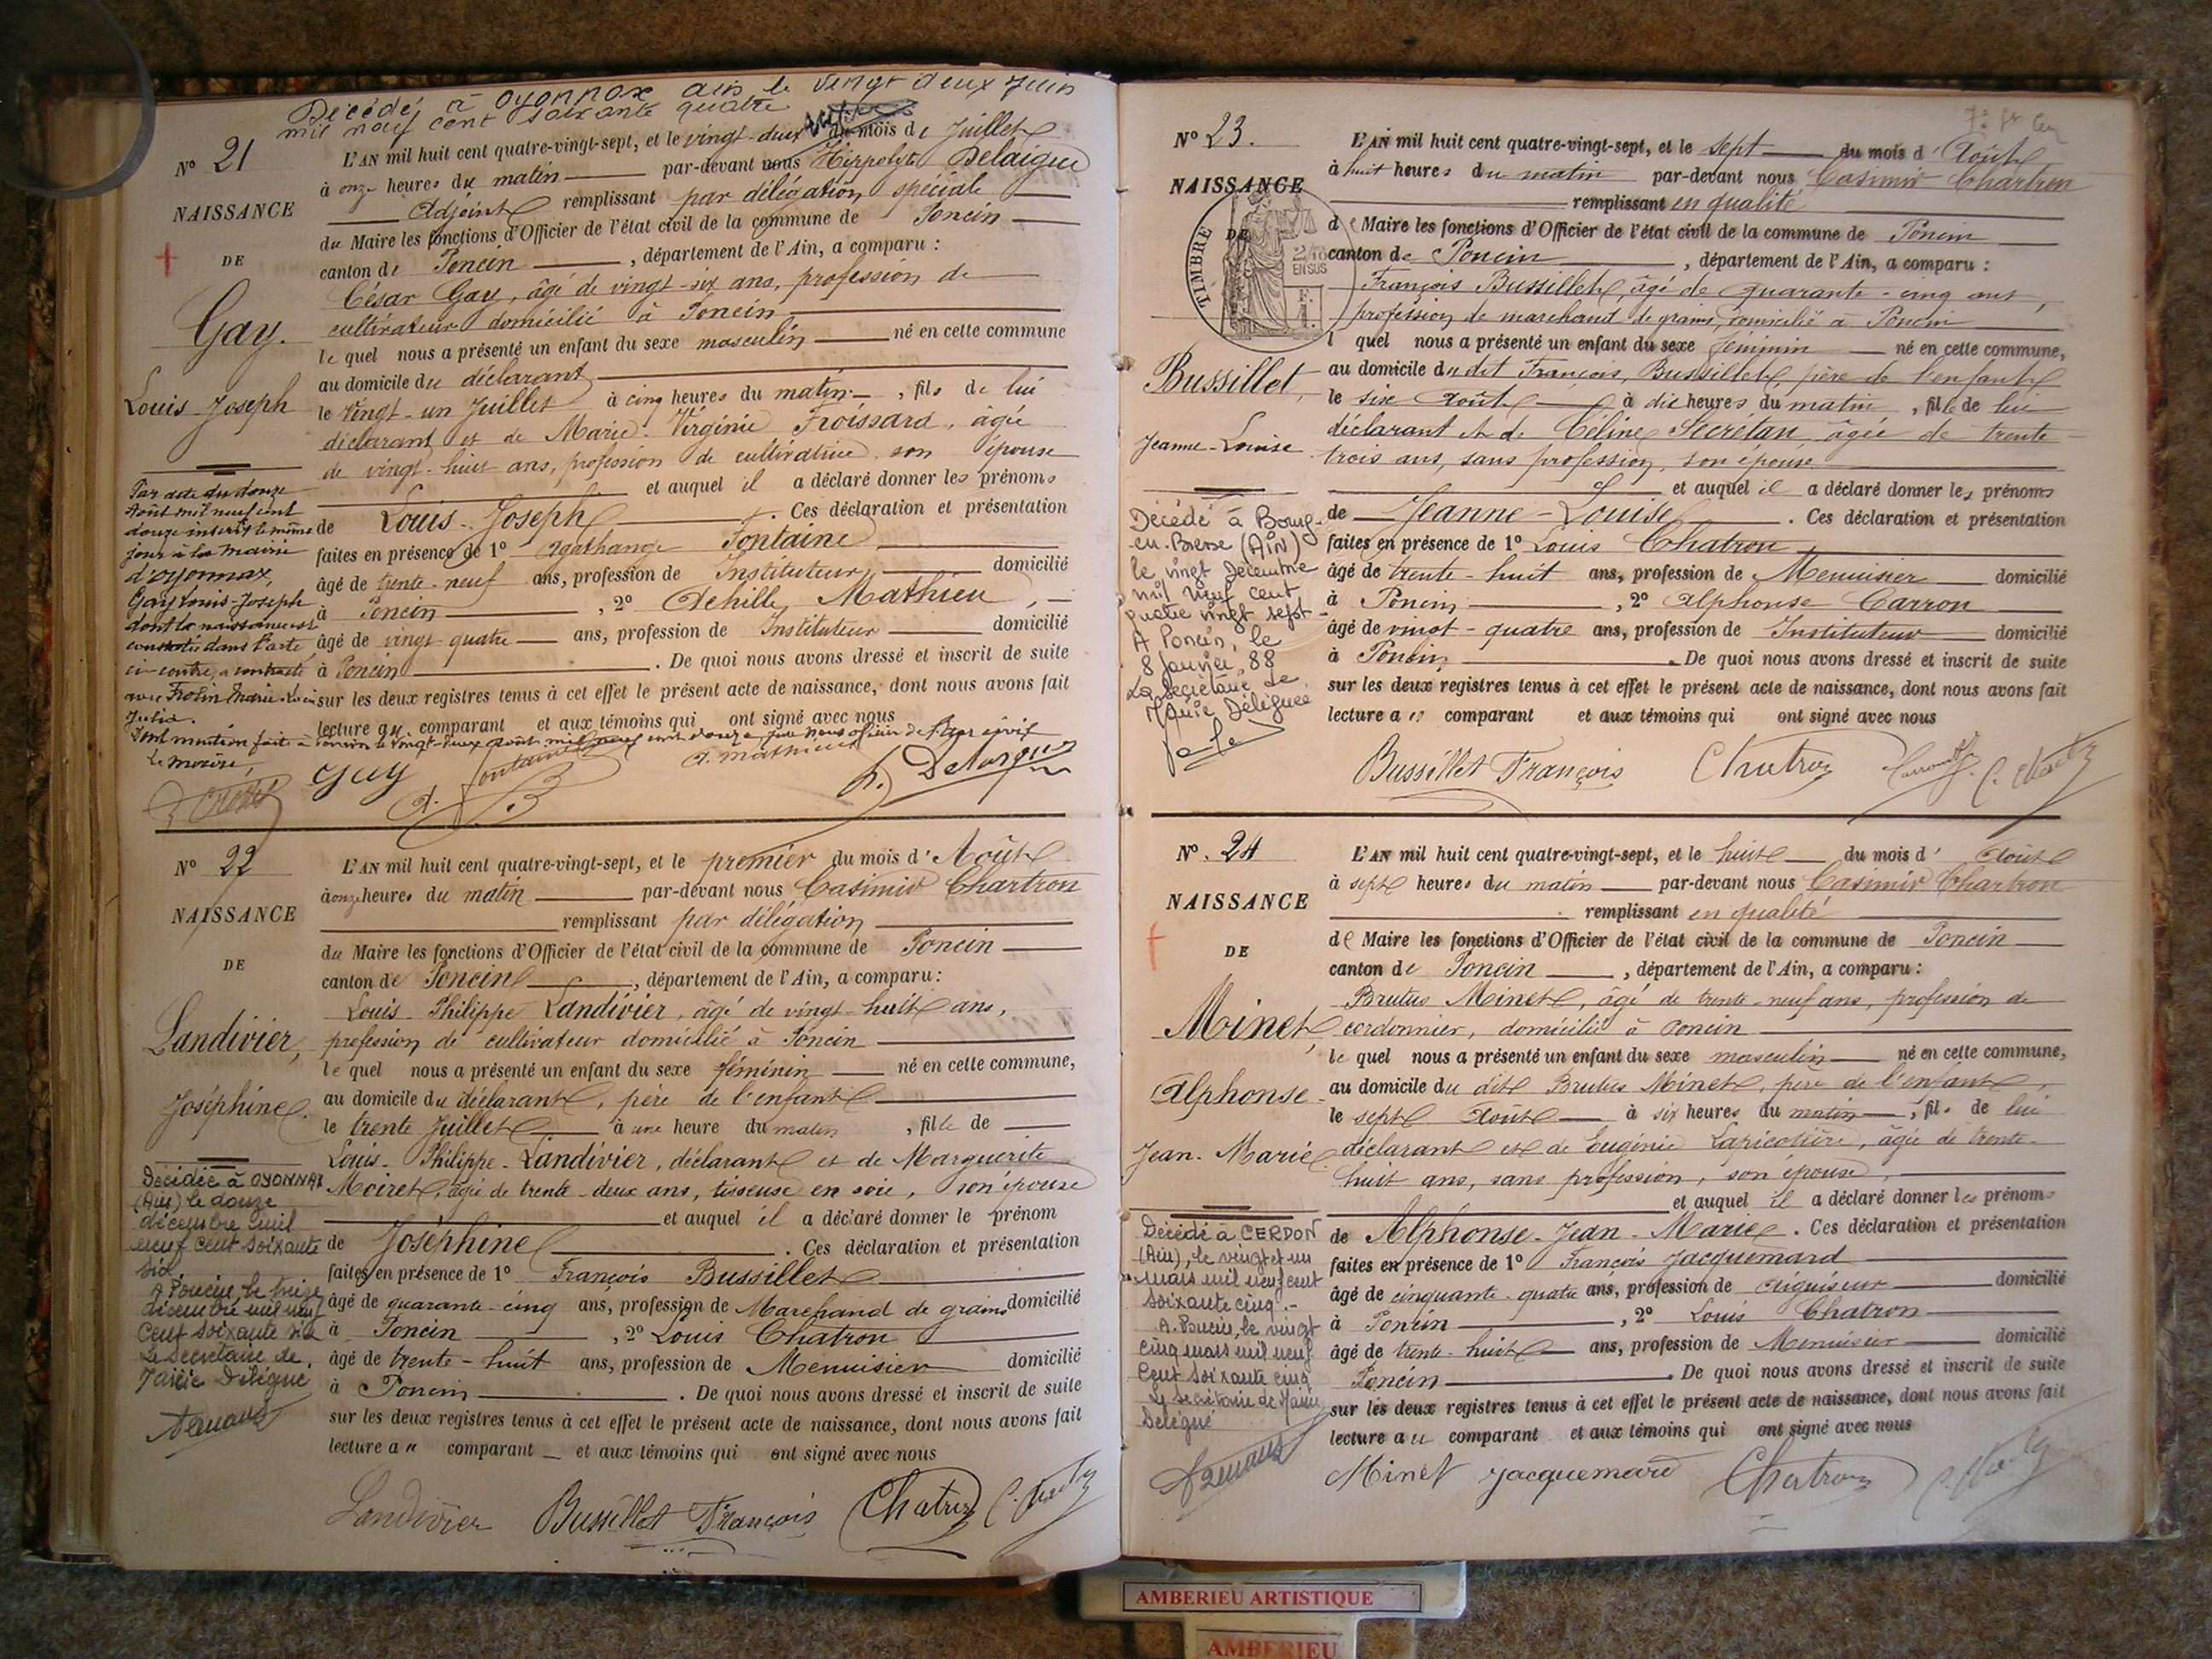 Décédé à Oyonnax Ain le vingt deux Juin
mil neuf cent soixante quatre
N° 21
NAISSANCE
DE
Gay.
Louis-Joseph
L'AN mil huit cent quatre-vingt-sept, et le vingt-deux du mois de Juillet
à onze heures du matin par-devant nous Hippolyte Delaigue
Adjoint remplissant par délégation spéciale
du Maire les fonctions d'Officier de l'état civil de la commune de Poncin
canton de Poncin, département de l'Ain, a comparu :
César Gay, âgé de vingt-six ans, profession de
cultivateur domicilié à Poncin
le quel nous a présenté un enfant du sexe masculin né en cette commune
au domicile du déclarant
le vingt-un Juillet à cinq heures du matin, fils de lui
déclarant et de Marie-Virginie Froissard, âgée
de vingt-huit ans, profession de cultivatrice son épouse
et auquel il a déclaré donner les prénoms
de Louis-Joseph. Ces déclaration et présentation
faites en présence de 1° Agathange Fontaine
âgé de trente-neuf ans, profession de Instituteur domicilié
à Poncin, 2° Achille Mathieu,
âgé de vingt quatre ans, profession de Instituteur domicilié
à Poncin. De quoi nous avons dressé et inscrit de suite
sur les deux registres tenus à cet effet le présent acte de naissance, dont nous avons fait
lecture au comparant et aux témoins qui ont signé avec nous
Par acte du douze
Août mil neuf cent
douze inscrit le même
jour à la mairie
d'Oyonnax,
Gay Louis-Joseph
dont la naissance est
constatée dans l'acte
ci-contre, a contracté
avec Marie
Julia.
Dont mention faite à Poncin le vingt-deux août mil neuf cent douze, par nous officier de l'état civil
Le maire,
Gay
A. Fontaine
A. Mathieu
N° 22
NAISSANCE
DE
Landivier,
Joséphine.
L'AN mil huit cent quatre-vingt-sept, et le premier du mois d'Août
à onze heures du matin par-devant nous Casimir Chartron
remplissant par délégation
du Maire les fonctions d'Officier de l'état civil de la commune de Poncin
canton de Poncin, département de l'Ain, a comparu :
Louis-Philippe Landivier, âgé de vingt-huit ans,
profession de cultivateur domicilié à Poncin
le quel nous a présenté un enfant du sexe féminin né en cette commune,
au domicile du déclarant, père de l'enfant
le trente Juillet à une heure du matin, fille de
Louis-Philippe-Landivier, déclarant et de Marguerite
Moiret, âgée de trente-deux ans, tisseuse en soie, son épouse
et auquel il a déclaré donner le prénom
de Joséphine. Ces déclaration et présentation
faites en présence de 1° François Bussillet
âgé de quarante-cinq ans, profession de Marchand de grains domicilié
à Poncin, 2° Louis Chatron
âgé de trente-huit ans, profession de Menuisier domicilié
à Poncin. De quoi nous avons dressé et inscrit de suite
sur les deux registres tenus à cet effet le présent acte de naissance, dont nous avons fait
lecture au comparant et aux témoins qui ont signé avec nous
Décédée à OYONNAX
(Ain) le douze
décembre mil
neuf cent soixante
six.
A Poncin, le treize
décembre mil neuf
cent soixante six
Le Secrétaire de
Mairie Délégué
Landivier Bussillet François Chatron
N° 23.
NAISSANCE
DE
TIMBRE
2/10
EN SUS
Bussillet
Jeanne-Louise
L'AN mil huit cent quatre-vingt-sept, et le sept du mois d'Août
à huit heures du matin par-devant nous Casimir Chartron
remplissant en qualité
de Maire les fonctions d'Officier de l'état civil de la commune de Poncin
canton de Poncin, département de l'Ain, a comparu :
François Bussillet, âgé de quarante-cinq ans,
profession de marchand de grains, domicilié à Poncin
l quel nous a présenté un enfant du sexe féminin né en cette commune,
au domicile dudit François Bussillet, père de l'enfant
le six Août à dix heures du matin, fille de lui
déclarant et de Céline Secretan, âgée de trente
trois ans, sans profession, son épouse
et auquel il a déclaré donner les prénoms
de Jeanne-Louise. Ces déclaration et présentation
faites en présence de 1° Louis Chatron
âgé de trente-huit ans, profession de Menuisier domicilié
à Poncin, 2° Alphonse Carron
âgé de vingt-quatre ans, profession de Instituteur domicilié
à Poncin. De quoi nous avons dressé et inscrit de suite
sur les deux registres tenus à cet effet le présent acte de naissance, dont nous avons fait
lecture au comparant et aux témoins qui ont signé avec nous
Décédé à Bourg-
en-Bresse (AIN)
le vingt Décembre
mil neuf cent
quatre vingt sept
A Poncin, le
8 Janvier 88
La Secrétaire de
Mairie Déléguée
Bussillet François Chatron
N°. 24
NAISSANCE
DE
Minet
Alphonse-
Jean-Marie
L'AN mil huit cent quatre-vingt-sept, et le huit du mois d'Août
à sept heures du matin par-devant nous Casimir Chartron
remplissant en qualité
de Maire les fonctions d'Officier de l'état civil de la commune de Poncin
canton de Poncin, département de l'Ain, a comparu :
Brutus Minet, âgé de trente-neuf ans, profession de
cordonnier, domicilié à Poncin
le quel nous a présenté un enfant du sexe masculin né en cette commune,
au domicile du dit Brutus Minet, père de l'enfant,
le sept Août à six heures du matin, fils de lui
déclarant et de Eugénie Laricotière, âgée de trente-
huit ans, sans profession, son épouse,
et auquel il a déclaré donner les prénoms
de Alphonse-Jean-Marie. Ces déclaration et présentation
faites en présence de 1° François Jacquemard
âgé de cinquante-quatre ans, profession de aiguiseur domicilié
à Poncin, 2° Louis Chatron
âgé de trente-huit ans, profession de Menuisier domicilié
Poncin. De quoi nous avons dressé et inscrit de suite
sur les deux registres tenus à cet effet le présent acte de naissance, dont nous avons fait
lecture au comparant et aux témoins qui ont signé avec nous
Décédé à CERDON
(Ain), le vingt et un
mars mil neuf cent
soixante cinq.-
A Poncin, le vingt
cinq mars mil neuf
cent soixante cinq
Le Secrétaire de Mairie
Délégué
Minet Jacquemard Chatron
AMBERIEU ARTISTIQUE
AMBERIEU